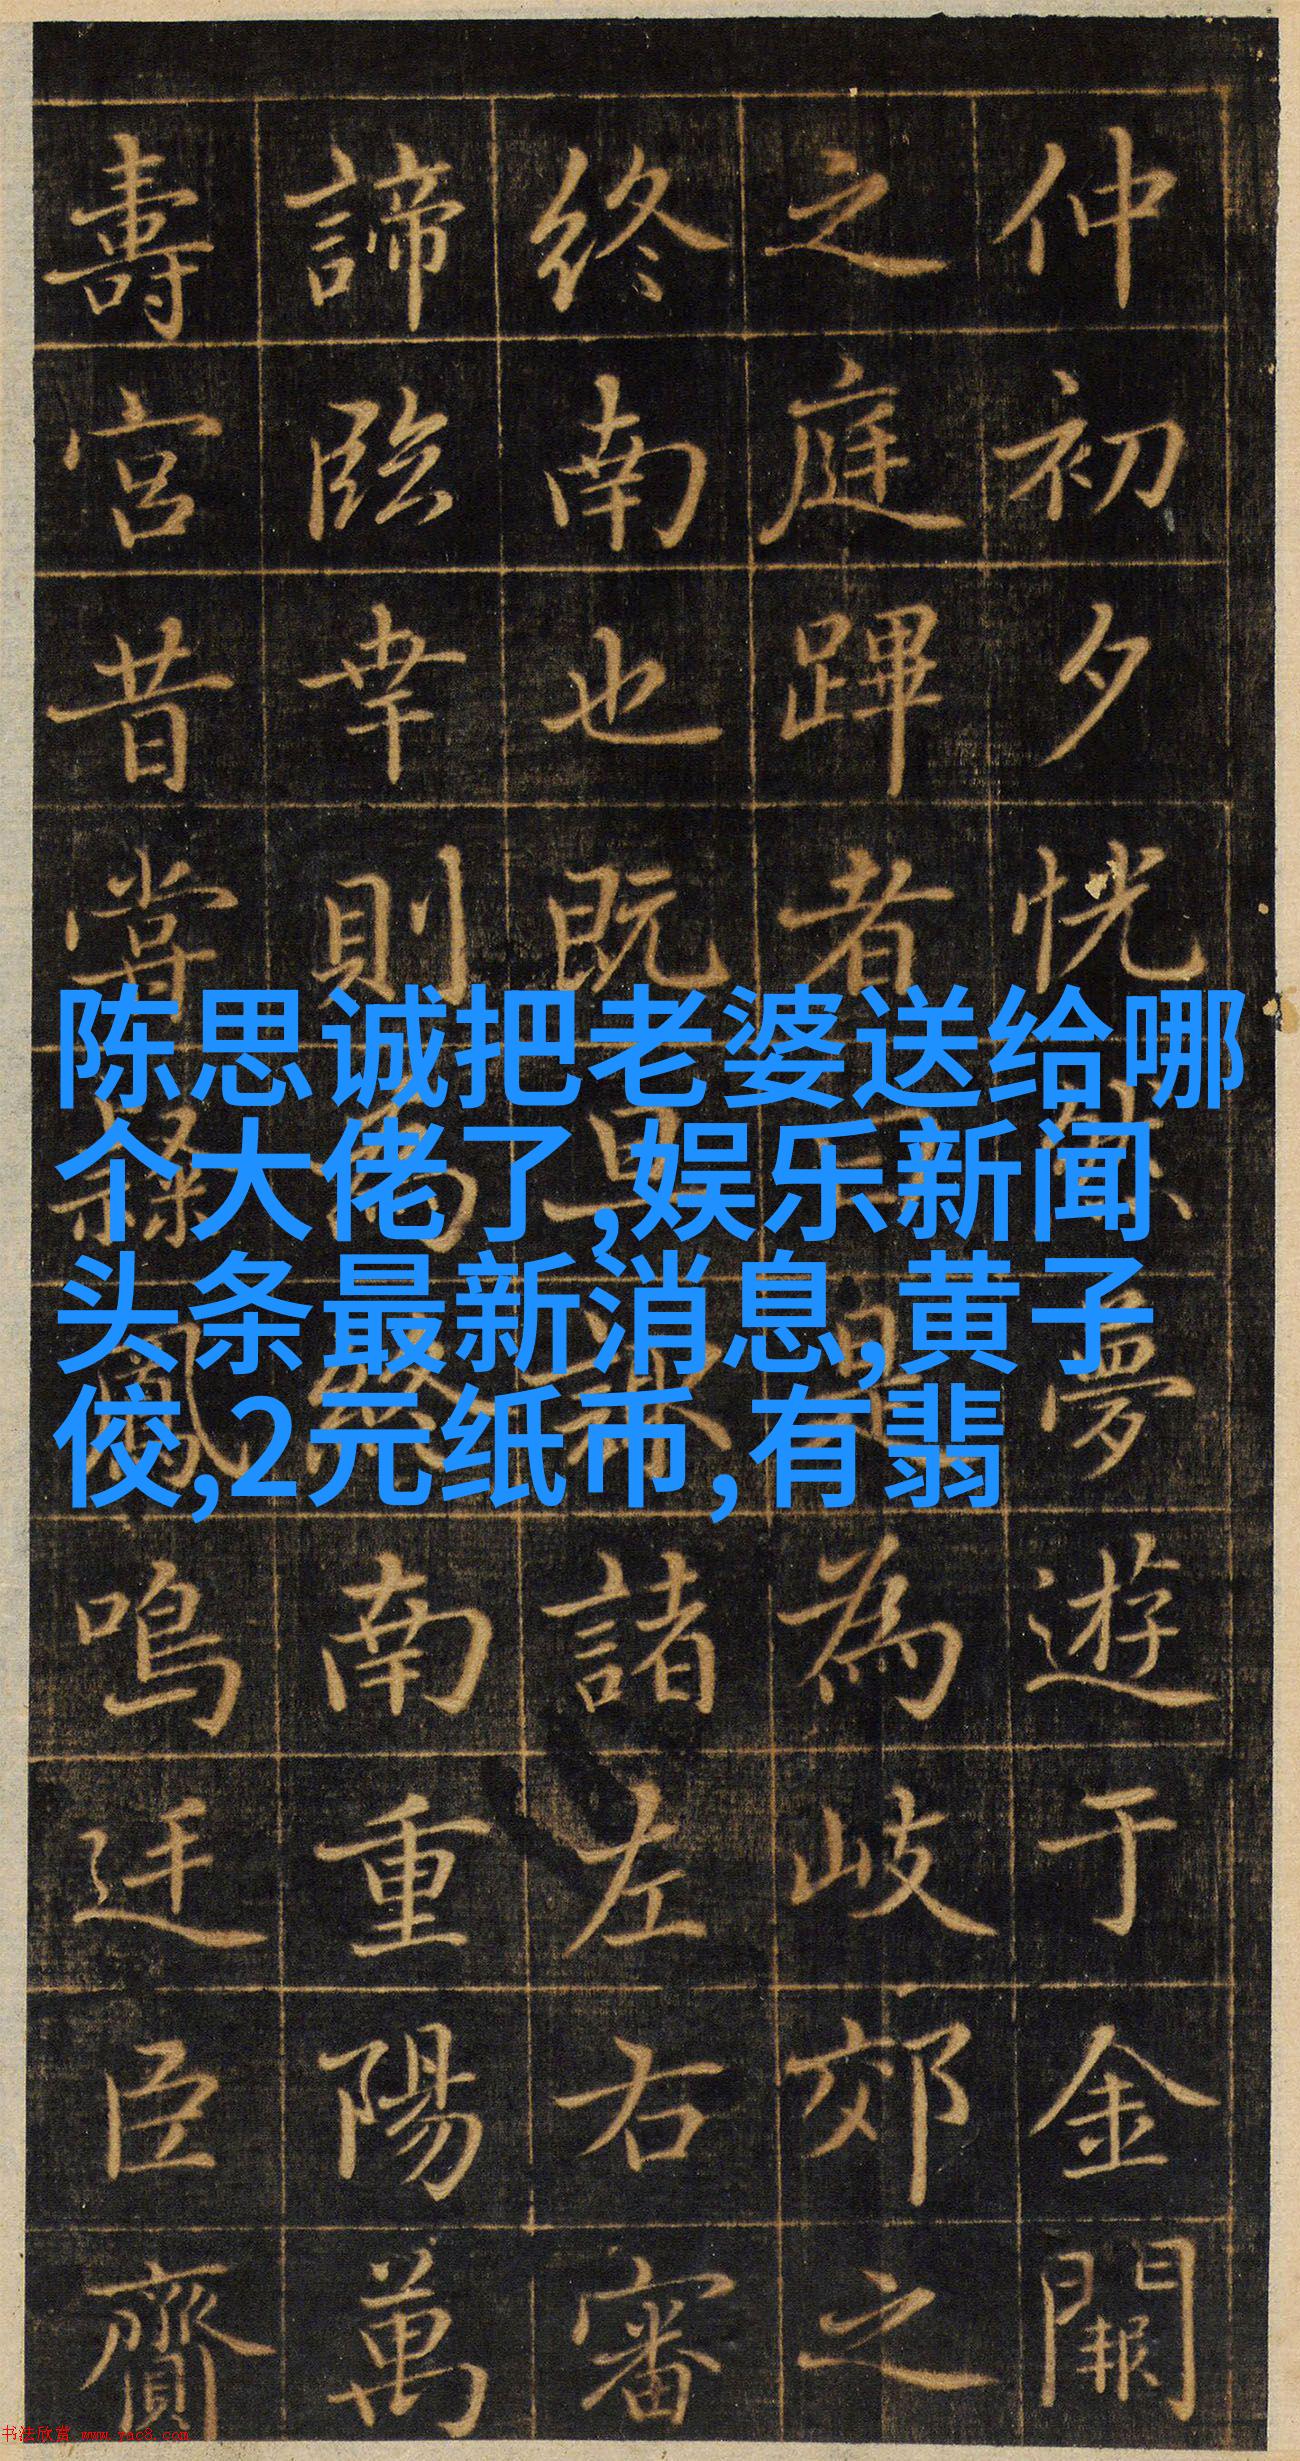 仲初夕恍
夢遊于金闕
之庭蹕者
為岐郊之
終南也既
諸左右審
諦臨幸則
南重陽萬
壽宮昔嘗
鳴迋臣齎
陈思诚把老婆送给哪
个大佬了,娱乐新闻
头条最新消息,黄子
佼,2元纸币,有翡
书法欣赏 www.yac8.com